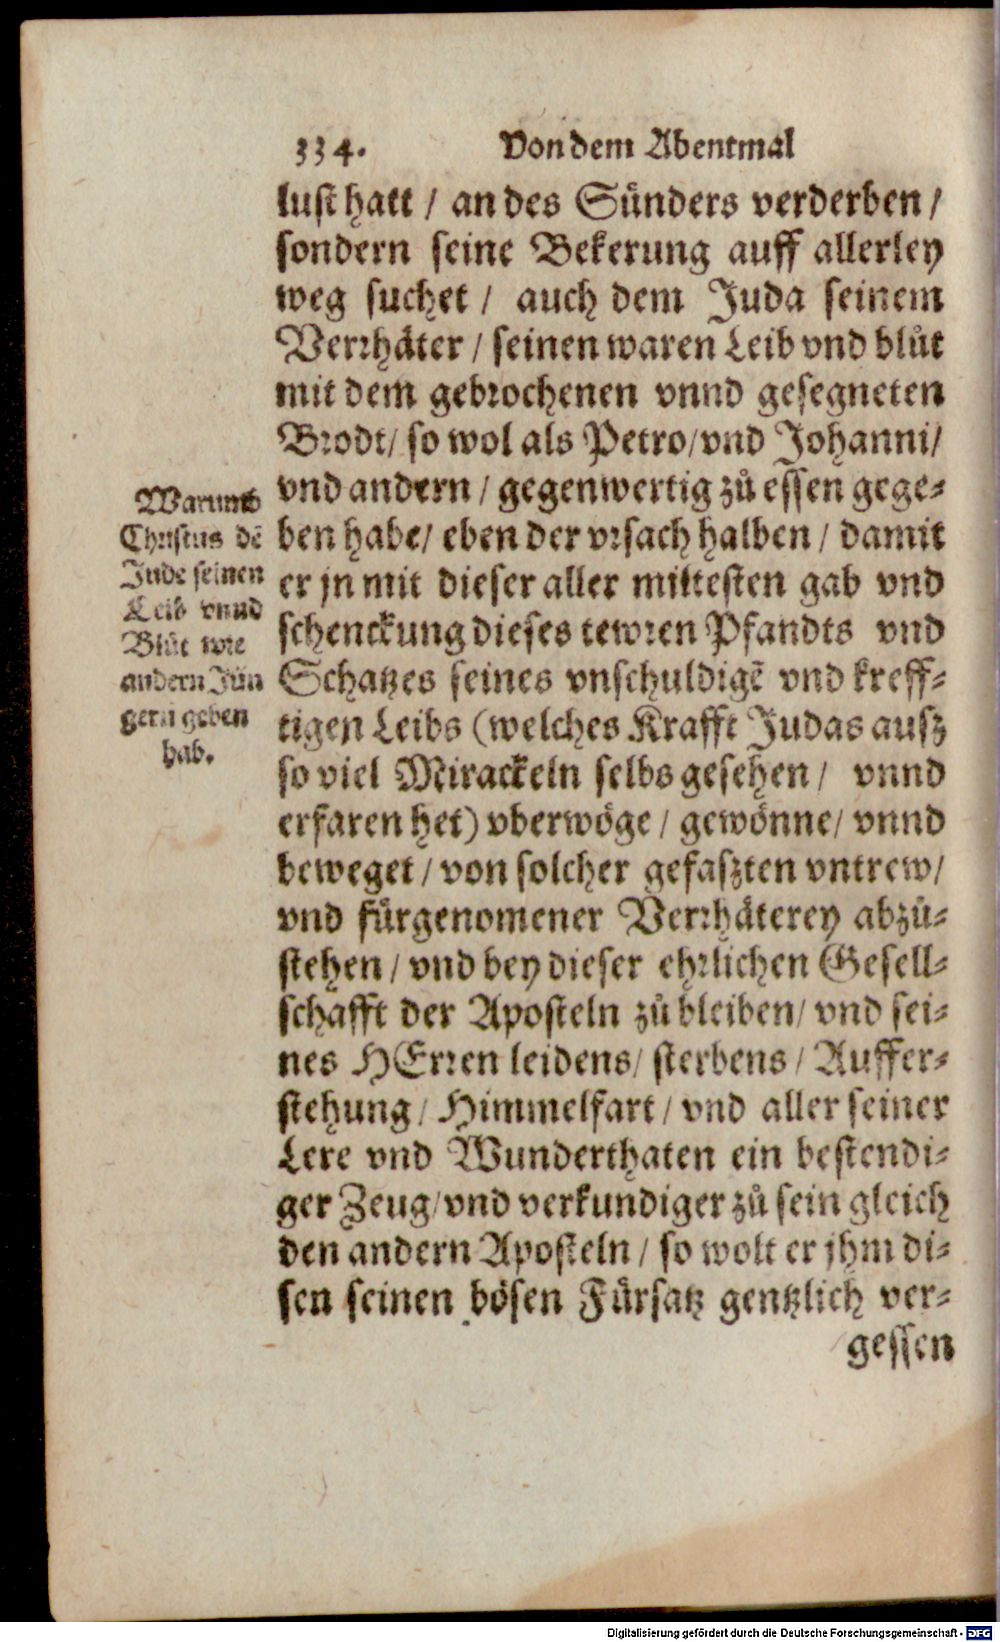 334. Von dem Abentmal
lust hatt / an des Sünders verderben /
sondern seine Bekerung auff allerley
weg suchet / auch dem Juda seinem
Verrhäter / seinen waren Leib vnd blůt
mit dem gebrochenen vnnd gesegneten
Brodt / so wol als Petro / vnd Johanni /
vnd andern / gegenwertig zů essen gege⸗
ben habe / eben der vrsach halben / damit
er jn mit dieser aller miltesten gab vnd
schenckung dieses tewren Pfandts vnd
Schatzes seines vnschuldigẽ vnd kreff⸗
tigen Leibs (welches Krafft Judas ausz
so viel Mirackeln selbs gesehen / vnnd
erfaren het) vberwöge / gewönne / vnnd
beweget / von solcher gefaszten vntrew /
vnd fürgenomener Verrhäterey abzů⸗
stehen / vnd bey dieser ehrlichen Gesell⸗
schafft der Aposteln zů bleiben / vnd sei⸗
nes HErren leidens / sterbens / Auffer⸗
stehung / Himmelfart / vnd aller seiner
Lere vnd Wunderthaten ein bestendi⸗
ger Zeug / vnd verkundiger zů sein gleich
den andern Aposteln / so wolt er jhm di⸗
sen seinen bösen Fürsatz gentzlich ver⸗
gessen
Warumb
Christus dẽ
Jude seinen
Leib vnnd
Blůt wie
andern Jün
gern geben
hab.
Digitalisierung gefördert durch die Deutsche Forschungsgemeinschaft - DFG